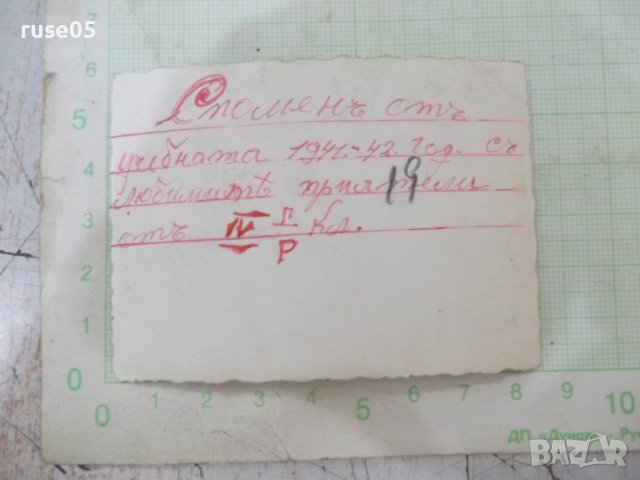 ruse05
Споменъ отъ
учебната 1941.-42. год. съ
любимитѣ приятели
19
отъ IV Г кл.
Р
7
6
5
4
3
2
1
0
0 1 2 3 4 5 6 7 8 9 10
ДП "Дунав"
BAZAR